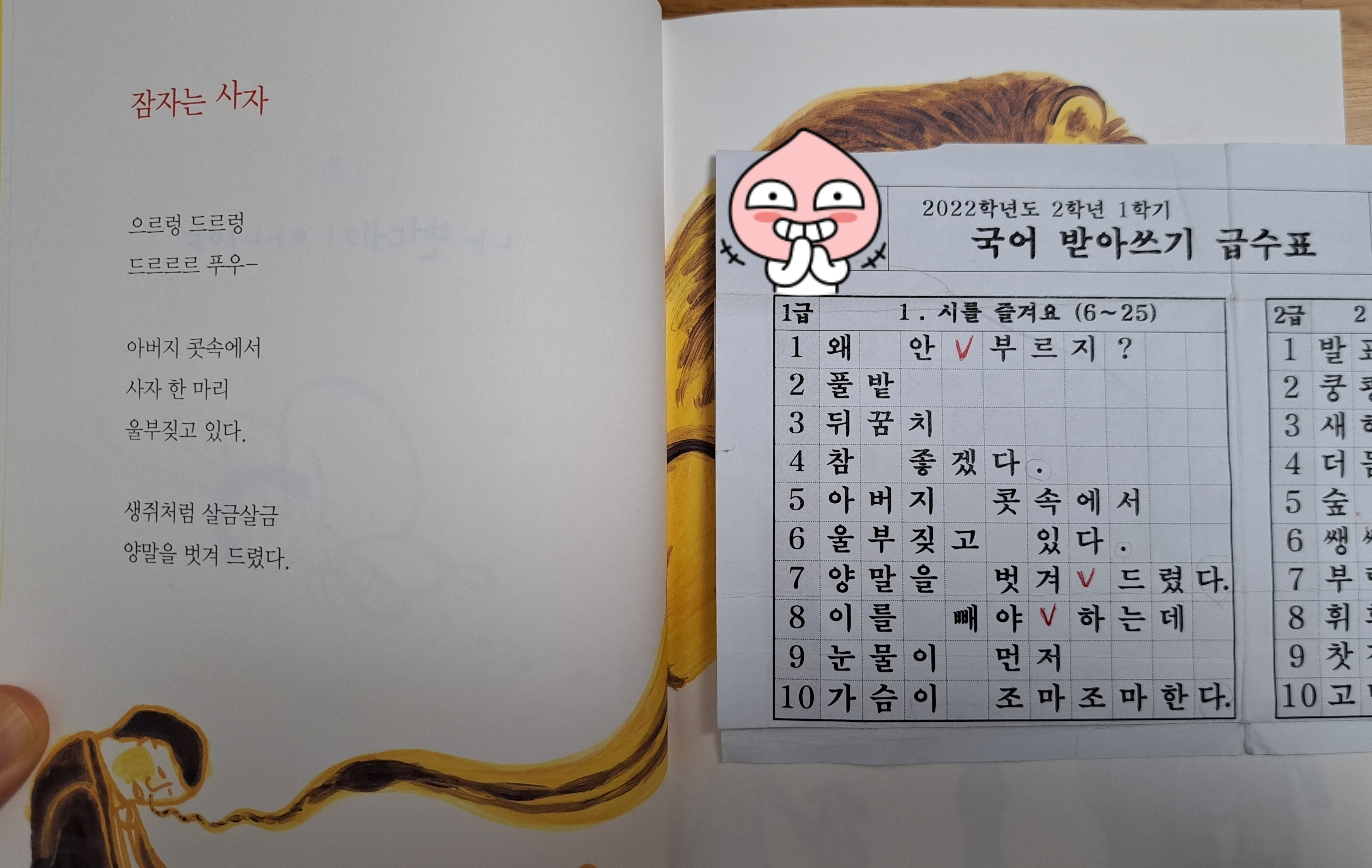 잠자는 사자
으르렁 드르렁
드르르르 푸우–
아버지 콧속에서
사자 한 마리
울부짖고 있다.
생쥐처럼 살금살금
양말을 벗겨 드렸다.
2022학년도 2학년 1학기
국어 받아쓰기 급수표
1급 1. 시를 즐겨요 (6~25)
1 왜 안 V 부르지?
2 풀밭
3 뒤꿈치
4 참 좋겠다.
5 아버지 콧속에서
6 울부짖고 있다.
7 양말을 벗겨 V 드렸다.
8 이를 빼야 V 하는데
9 눈물이 먼저
10 가슴이 조마조마한다.
2급 2
1 발
2 쿵
3 새
4 더
5 숲
6 쌩
7 부
8 휘
9 찻
10 고